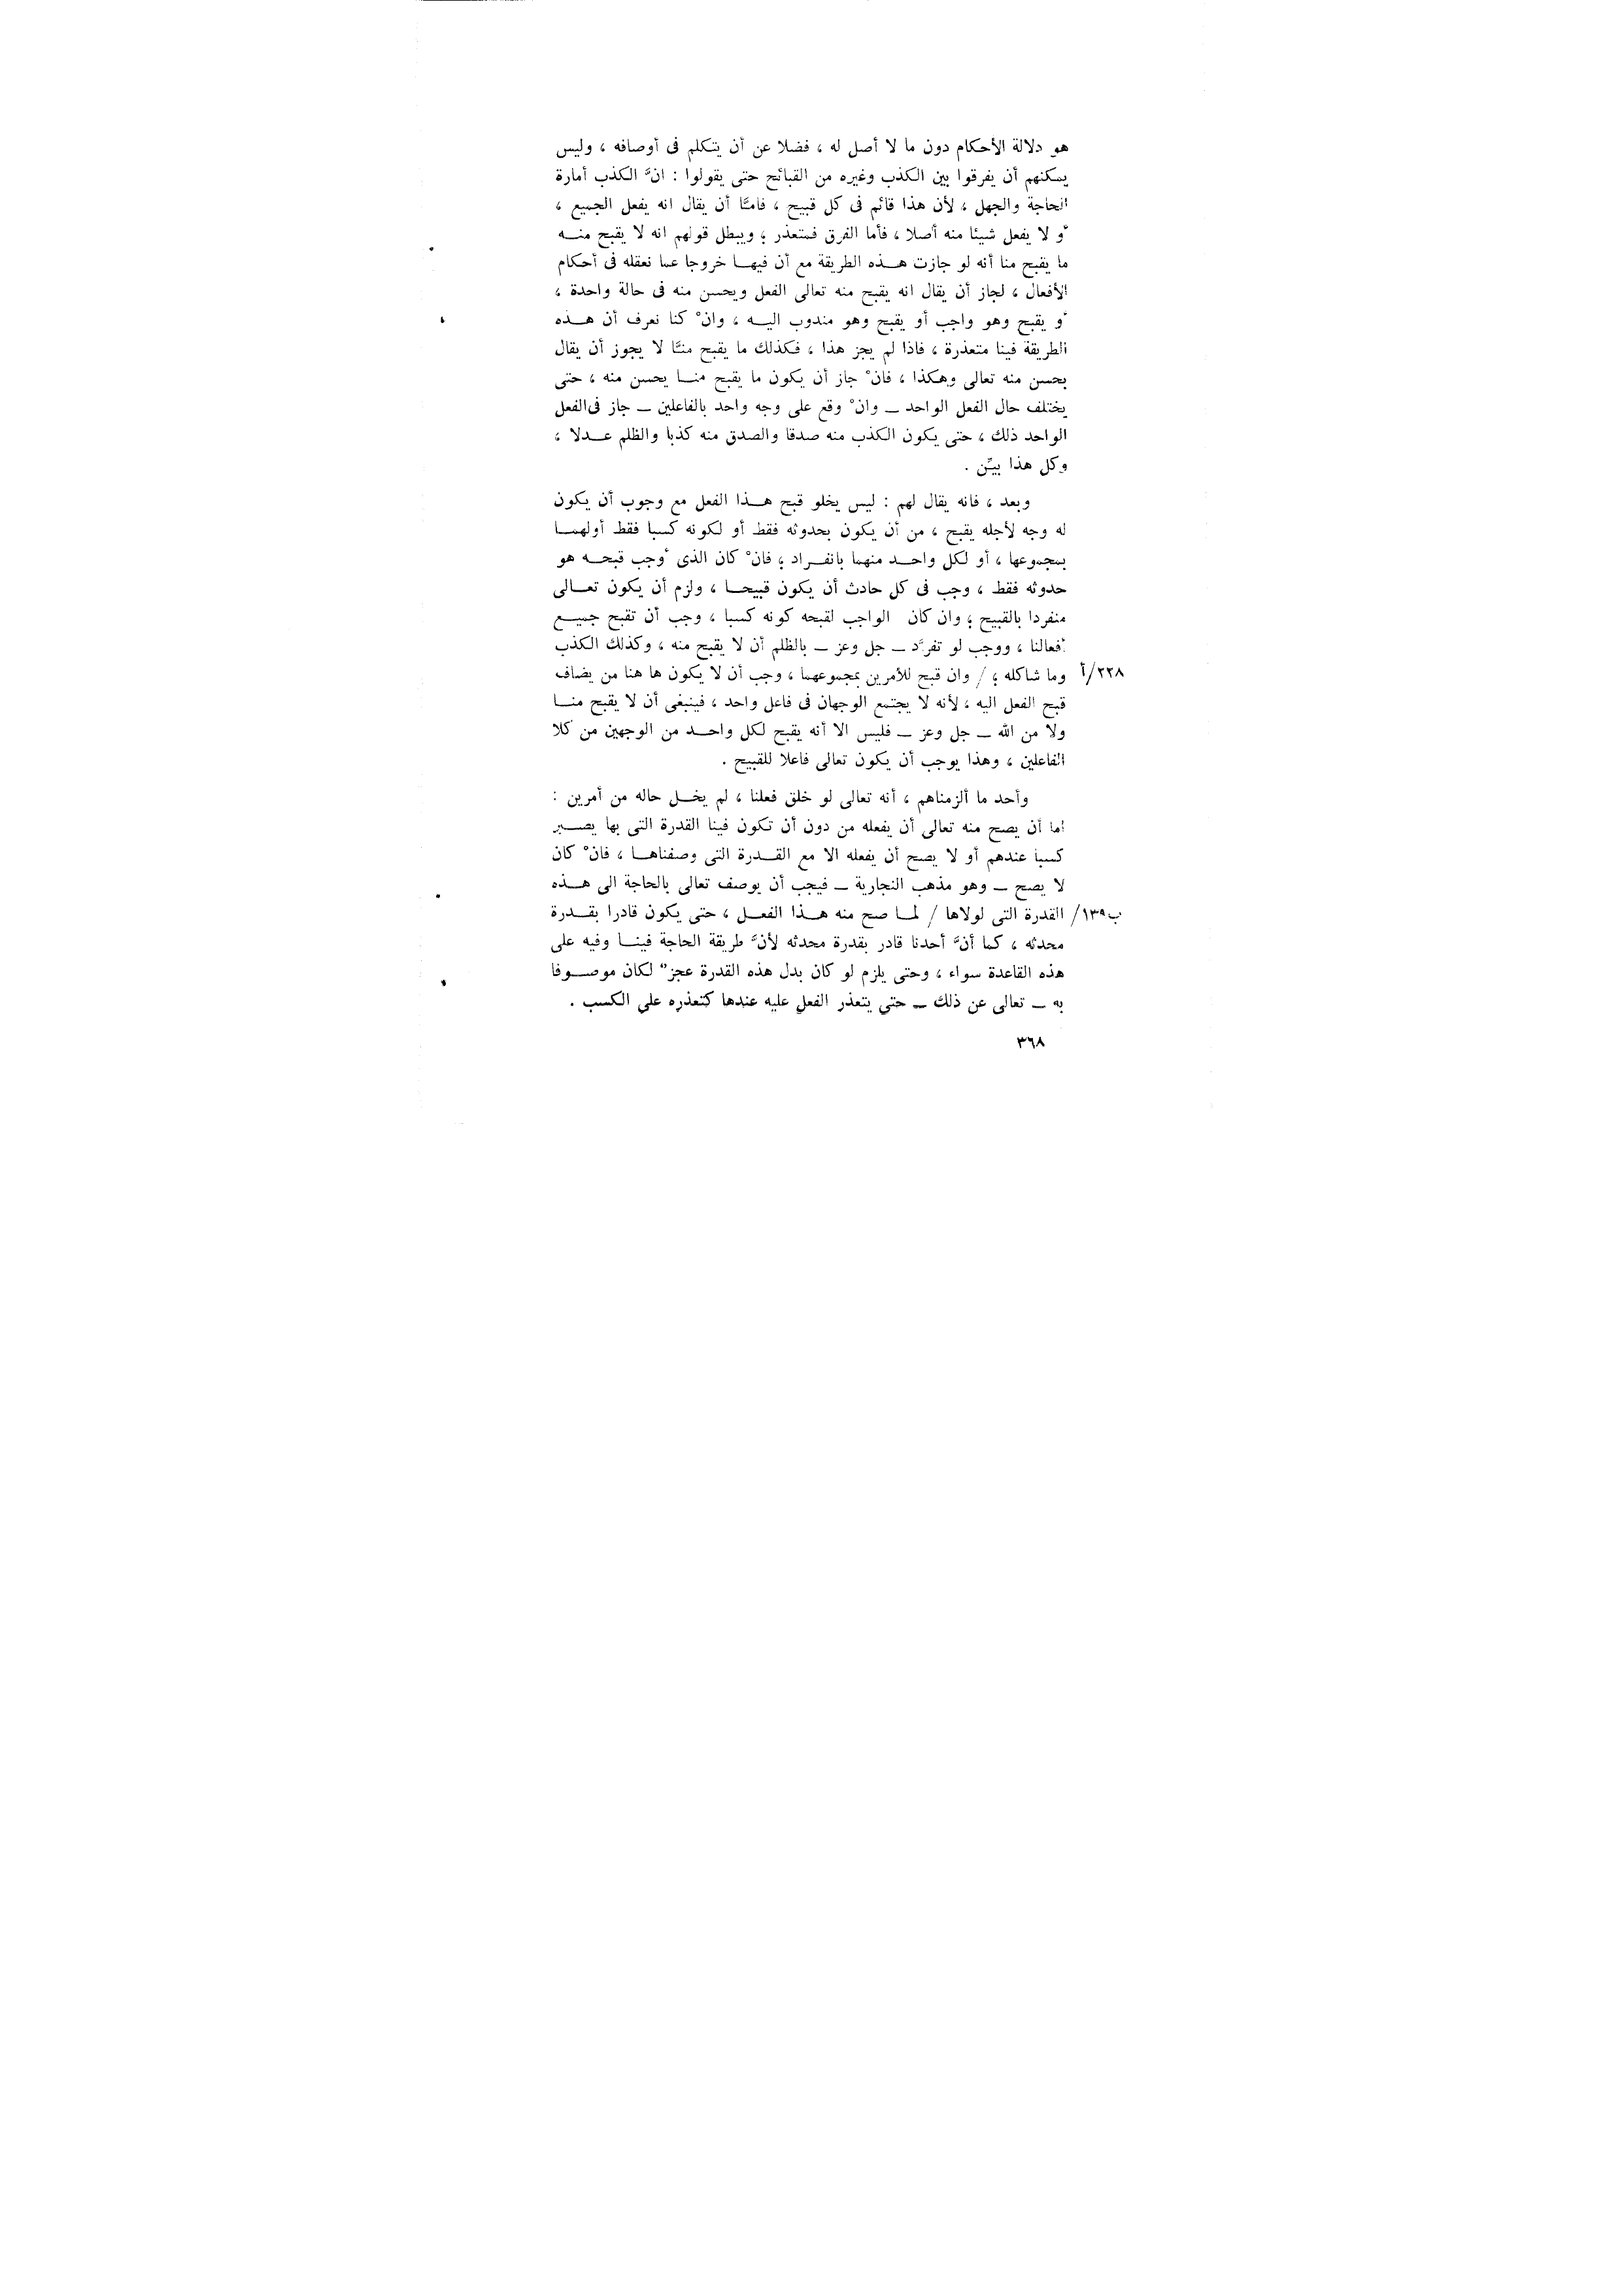 هو دلالة الأحكام دون ما لا أصل له ، فضلا عن أن يتكلم فى أوصافه ، وليس
يمكنهم أن يفرقوا بين الكذب وغيره من القبائح حتى يقولوا : انَّ الكذب أمارة
الحاجة والجهل ، لأن هذا قائم فى كل قبيح ، فامَّا أن يقال انه يفعل الجميع ،
أو لا يفعل شيئا منه أصلا ، فأما الفرق فمتعذر ؛ ويبطل قولهم انه لا يقبح منه
ما يقبح منا أنه لو جازت هذه الطريقة مع أن فيها خروجا عما نعقله فى أحكام
الأفعال ، لجاز أن يقال انه يقبح منه تعالى الفعل ويحسن منه فى حالة واحدة ،
أو يقبح وهو واجب أو يقبح وهو مندوب اليه ، وانْ كنا نعرف أن هذه
الطريقة فينا متعذرة ، فاذا لم يجز هذا ، فكذلك ما يقبح منَّا لا يجوز أن يقال
يحسن منه تعالى وهكذا ، فانْ جاز أن يكون ما يقبح منا يحسن منه ، حتى
يختلف حال الفعل الواحد ــ وانْ وقع على وجه واحد بالفاعلين ــ جاز فى الفعل
الواحد ذلك ، حتى يكون الكذب منه صدقا والصدق منه كذبا والظلم عدلا ،
وكل هذا بيِّن .
وبعد ، فانه يقال لهم : ليس يخلو قبح هذا الفعل مع وجوب أن يكون
له وجه لأجله يقبح ، من أن يكون بحدوثه فقط أو لكونه كسبا فقط أولهما
بمجموعها ، أو لكل واحد منهما بانفراد ؛ فانْ كان الذى أوجب قبحه هو
حدوثه فقط ، وجب فى كل حادث أن يكون قبيحا ، ولزم أن يكون تعالى
منفردا بالقبيح ؛ وان كان الواجب لقبحه كونه كسبا ، وجب أن تقبح جميع
أفعالنا ، ووجب لو تفرَّد ــ جل وعز ــ بالظلم أن لا يقبح منه ، وكذلك الكذب
٢٢٨/أ وما شاكله ؛ / وان قبح للأمرين بمجموعهما ، وجب أن لا يكون ها هنا من يضاف
قبح الفعل اليه ، لأنه لا يجتمع الوجهان فى فاعل واحد ، فينبغى أن لا يقبح منا
ولا من الله ــ جل وعز ــ فليس الا أنه يقبح لكل واحد من الوجهين من كلا
الفاعلين ، وهذا يوجب أن يكون تعالى فاعلا للقبيح .
وأحد ما ألزمناهم ، أنه تعالى لو خلق فعلنا ، لم يخل حاله من أمرين :
اما أن يصح منه تعالى أن يفعله من دون أن تكون فينا القدرة التى بها يصير
كسبا عندهم أو لا يصح أن يفعله الا مع القدرة التى وصفناها ، فانْ كان
لا يصح ــ وهو مذهب النجارية ــ فيجب أن يوصف تعالى بالحاجة الى هذه
ب١٣٩/ القدرة التى لولاها / لما صح منه هذا الفعل ، حتى يكون قادرا بقدرة
محدثه ، كما أنَّ أحدنا قادر بقدرة محدثه لأنَّ طريقة الحاجة فينا وفيه على
هذه القاعدة سواء ، وحتى يلزم لو كان بدل هذه القدرة عجزٌ لكان موصوفا
به ــ تعالى عن ذلك ــ حتى يتعذر الفعل عليه عندها كتعذره على الكسب .
٣٦٨